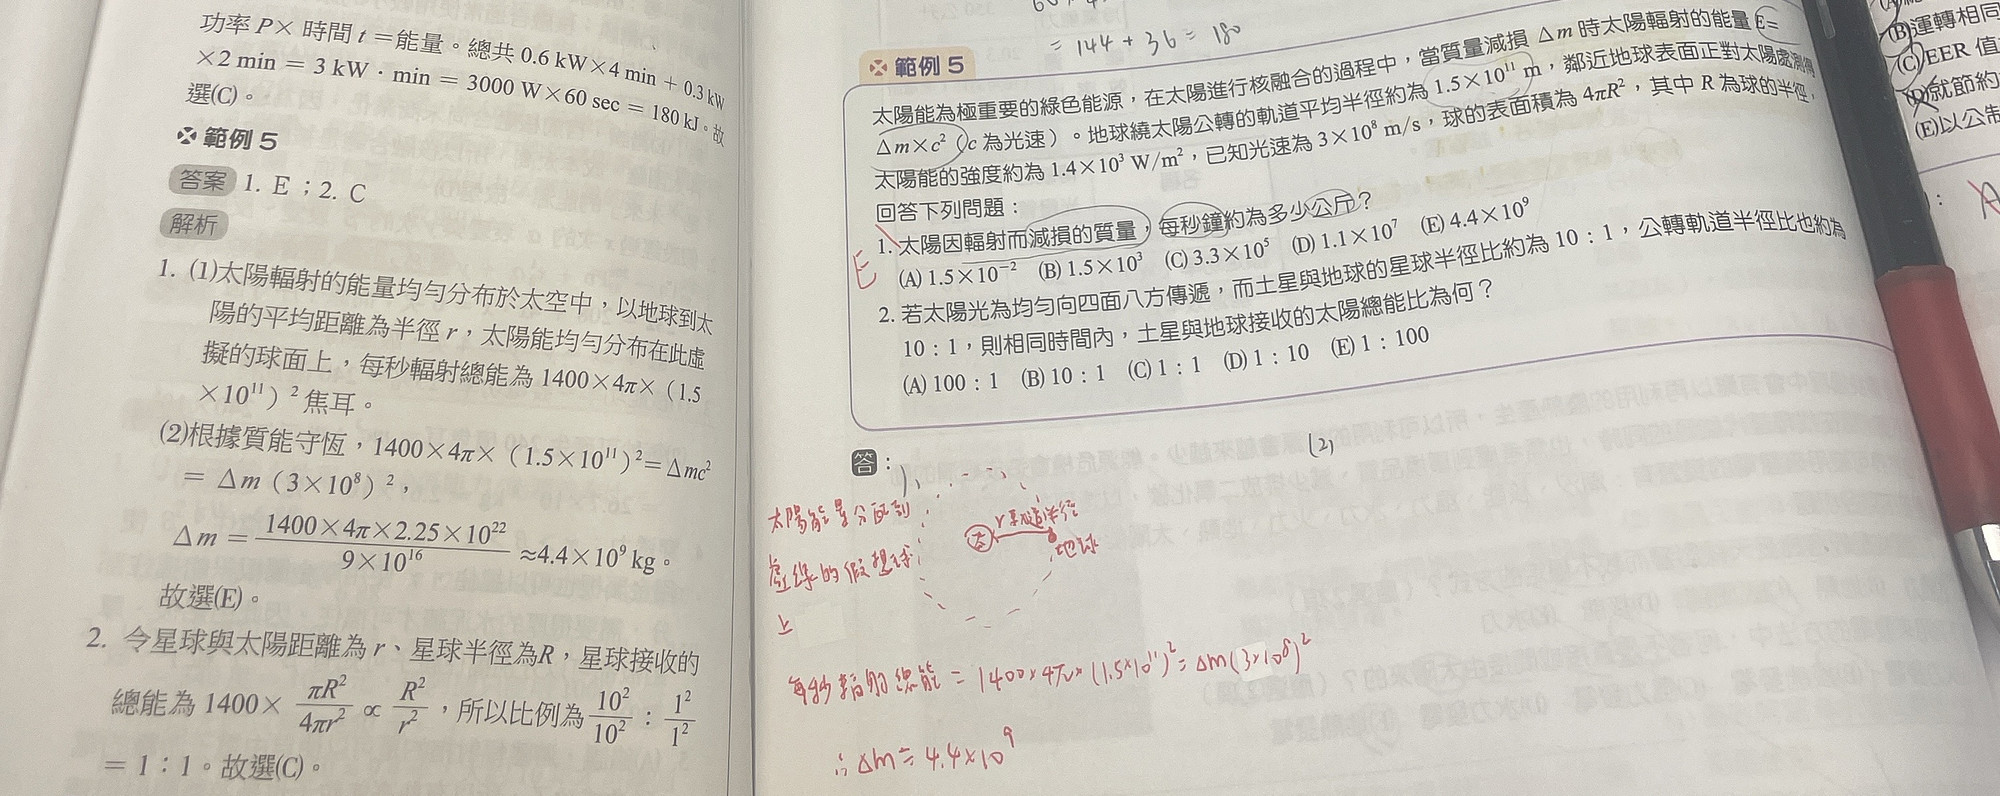 功率 P× 時間 t =能量。總共 0.6 kW×4 min + 0.3 kW
×2 min = 3 kW · min = 3000 W×60 sec = 180 kJ。故
選(C)。
範例 5
答案 1. E ; 2. C
解析
1. (1)太陽輻射的能量均勻分布於太空中,以地球到太
陽的平均距離為半徑 r,太陽能均勻分布在此虛
擬的球面上,每秒輻射總能為 1400×4π×(1.5
×10¹¹)² 焦耳。
(2)根據質能守恆,1400×4π×(1.5×10¹¹)²= Δmc²
= Δm(3×10⁸)²,
Δm = 1400×4π×2.25×10²² / 9×10¹⁶ ≈4.4×10⁹ kg。
故選(E)。
2. 令星球與太陽距離為 r、星球半徑為R,星球接收的
總能為 1400× πR²/4πr² ∝ R²/r²,所以比例為 10²/10² : 1²/1²
= 1:1。故選(C)。
= 144 + 36 = 180
範例 5
太陽能為極重要的綠色能源,在太陽進行核融合的過程中,當質量減損 Δm 時太陽輻射的能量 E=
Δm×c²(c 為光速)。地球繞太陽公轉的軌道平均半徑約為 1.5×10¹¹ m,鄰近地球表面正對太陽處測得
太陽能的強度約為 1.4×10³ W/m²,已知光速為 3×10⁸ m/s,球的表面積為 4πR²,其中 R 為球的半徑,
回答下列問題:
E
1. 太陽因輻射而減損的質量,每秒鐘約為多少公斤?
(A) 1.5×10⁻² (B) 1.5×10³ (C) 3.3×10⁵ (D) 1.1×10⁷ (E) 4.4×10⁹
2. 若太陽光為均勻向四面八方傳遞,而土星與地球的星球半徑比約為 10:1,公轉軌道半徑比也約為
10:1,則相同時間內,土星與地球接收的太陽總能比為何?
(A) 100:1 (B) 10:1 (C) 1:1 (D) 1:10 (E) 1:100
答:
(2)
太陽能量分配到
虛線的假想球
上
r軌道半徑
太
地球
每秒輻射總能 = 1400×4π×(1.5×10¹¹)² = Δm(3×10⁸)²
∴ Δm ≒ 4.4×10⁹
(B)運轉相同
(C)EER 值
(D)就節約
(E)以公布